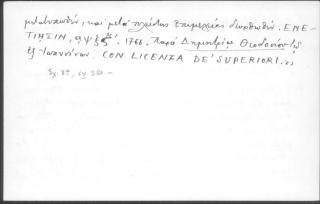 μεταποιηθὲν, καὶ μετὰ πλείστης ἐπιμελείας διορθωθέν. ΕΝΕ-
ΤΙΗΣΙΝ, αψξϛ´. 1766. Παρὰ Δημητρίῳ Θεοδοσίου τῷ
ἐξ Ἰωαννίνων. CON LICENZA DE' SUPERIORI.
Σχ. 8ον, σσ. 380.-